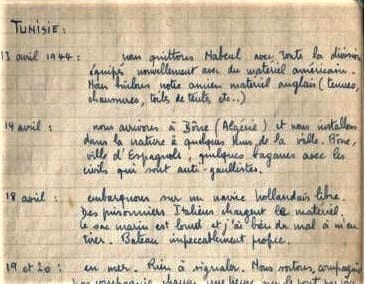 TUNISIE:
13 avril 1944 : nous quittons Nabeul avec toute la division
équipés nouvellement avec du matériel américain.
Nous brûlons notre ancien matériel anglais (tenues,
chaussures, toiles de tente etc..)
14 avril : nous arrivons à Bône (Algérie) et nous installons
dans la nature à quelques kms de la ville. Bône,
ville d'Espagnols, quelques bagarres avec les
civils qui sont anti-gaullistes.
18 avril : embarquons sur un navire hollandais libre.
Des prisonniers Italiens chargent le matériel
le sac marin est lourd et j'ai bien du mal à m'en
tirer. Bateau impeccablement propre.
19 et 20 : en mer. Rien à signaler. Nous sortons, compagnie
par compagnie, chaque une heure sur le pont